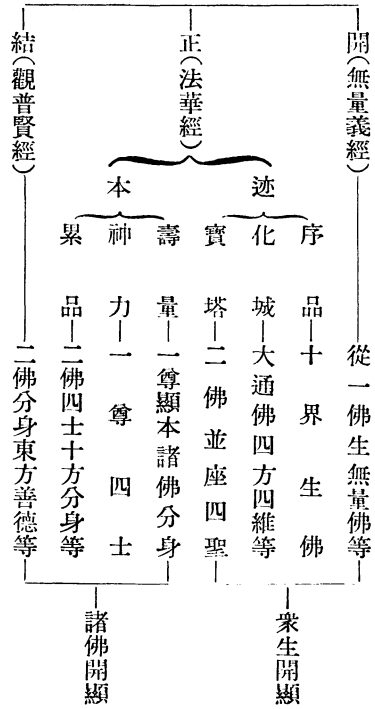 開(無量義經)
從一佛生無量佛等
正(法華經)
迹
序品
十界生佛
化城
大通佛四方四維等
寶塔
二佛並座四聖
本
壽量
一尊顯本諸佛分身
神力
一尊四士
累品
二佛四士十方分身等
結(觀普賢經)
二佛分身東方善德等
衆生開顯
諸佛開顯